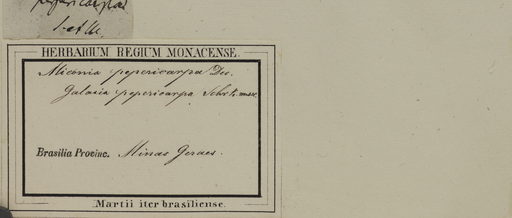 pepericarpa
HERBARIUM REGIUM MONACENSE.
Miconia pepericarpa Dec.
Galosia pepericarpa Schrt. mss.
Brasilia Provinc. Minas Geraes.
Martii iter brasiliense.